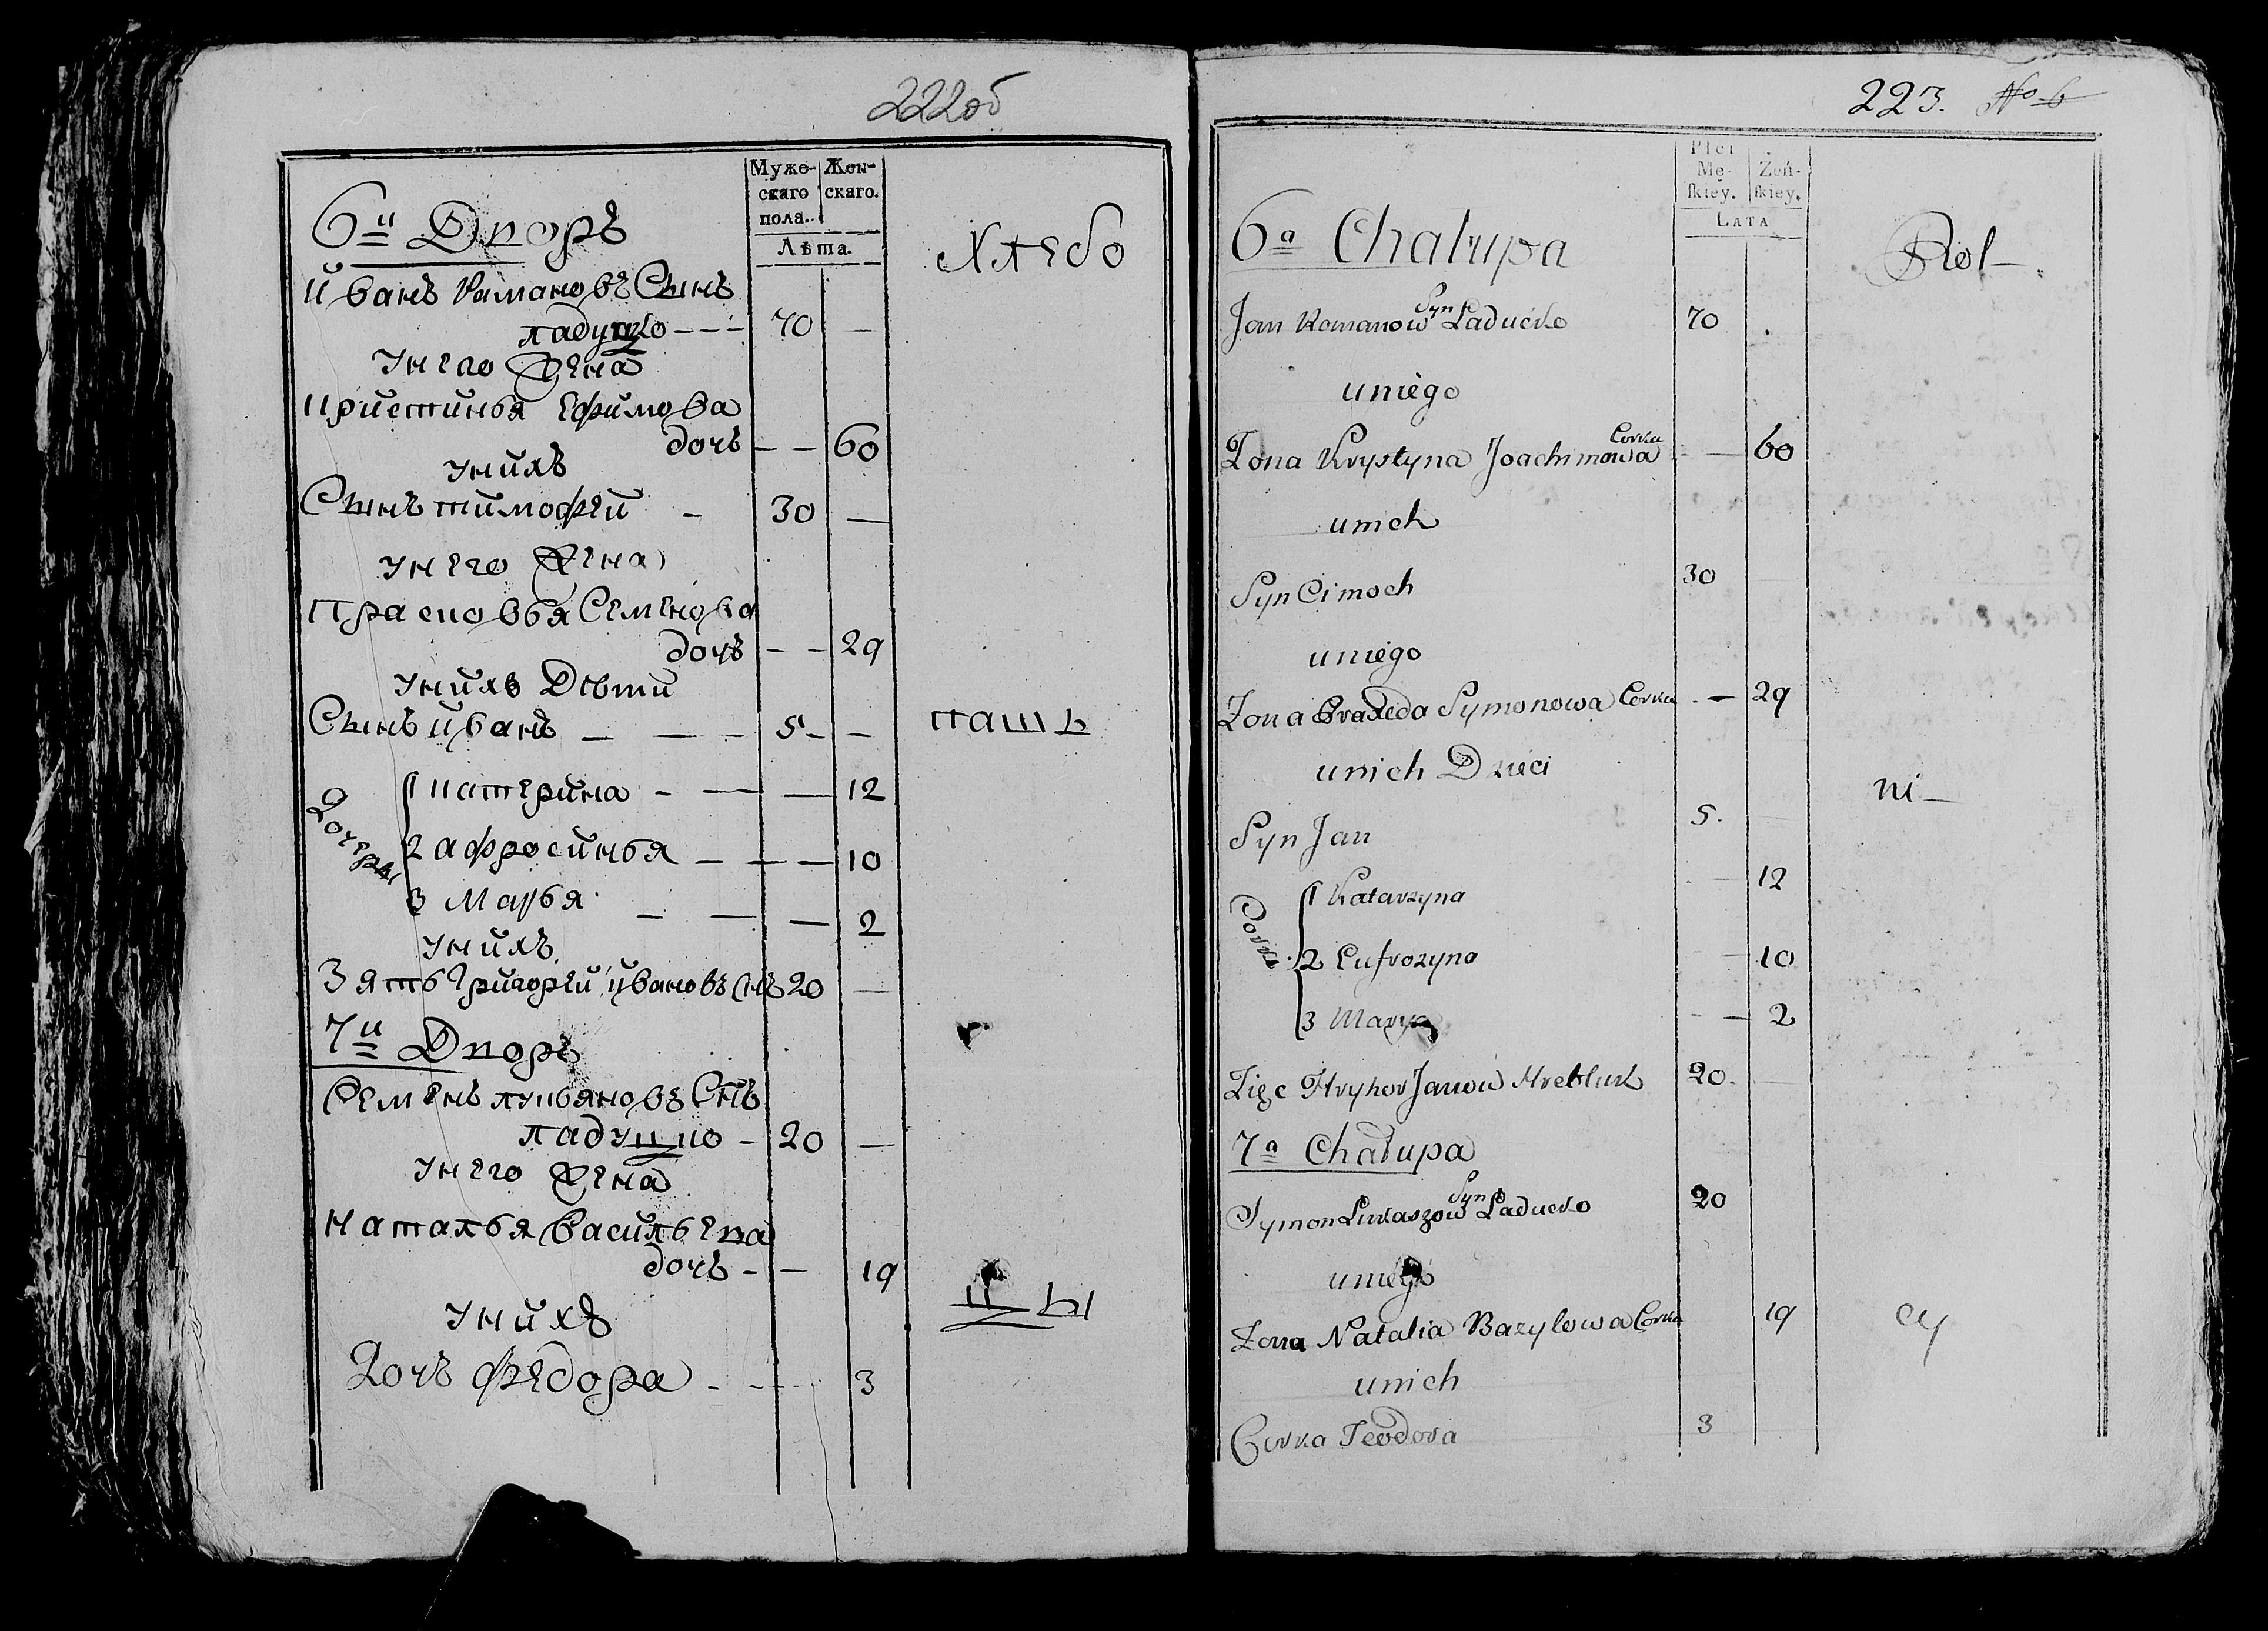 222об
Муже-
скаго
пола.
Жен-
скаго.
Лѣта.
6й Дворъ
Хлебо
Иванъ Романовъ Сынъ
Ладуцко --- 70 —
У него Жена
Кристинья Ефимова
дочь — — 60
У нихъ
Сынъ Тимофей - 30 —
У него Жена
Прасковья Семенова
дочь — — 29
У нихъ Дѣти
Сынъ Иванъ — — - 5 - —
паш
Дочери
1 Катерина - — — 12
2 Афросинья — — — 10
3 Марья — — — 2
У нихъ
Зять Григорей Ивановъ Снъ 20 —
7й Дворъ
Семенъ Лукьяновъ Снъ
Ладуцко - 20 —
У него Жена
Наталья Васильева
дочь - — 19
цы
У нихъ
Дочь Федора - - - 3
223. No 6
Płci
Mę-
skiey.
Żeń-
skiey.
LATA
6a Chałupa
Rol-
Jan Romanow Syn Ladućko 70
u niego
Zona Krystyna Joachimowa Corka — 60
u nich
Syn Cimoch 30
u niego
Zona Praxeda Symonowa Corka - — 29
u nich Dzieci
ni-
Syn Jan 5.
Corki
1 Katarzyna 12
2 Eufrozyna 10
3 Marya 2
Zięc Hryhor Janow 20.
7a Chałupa
Symon Łukaszow Syn Ladućko 20
u niego
Zona Natalia Bazylowa Corka 19
cy
u nich
Corka Teodora 3